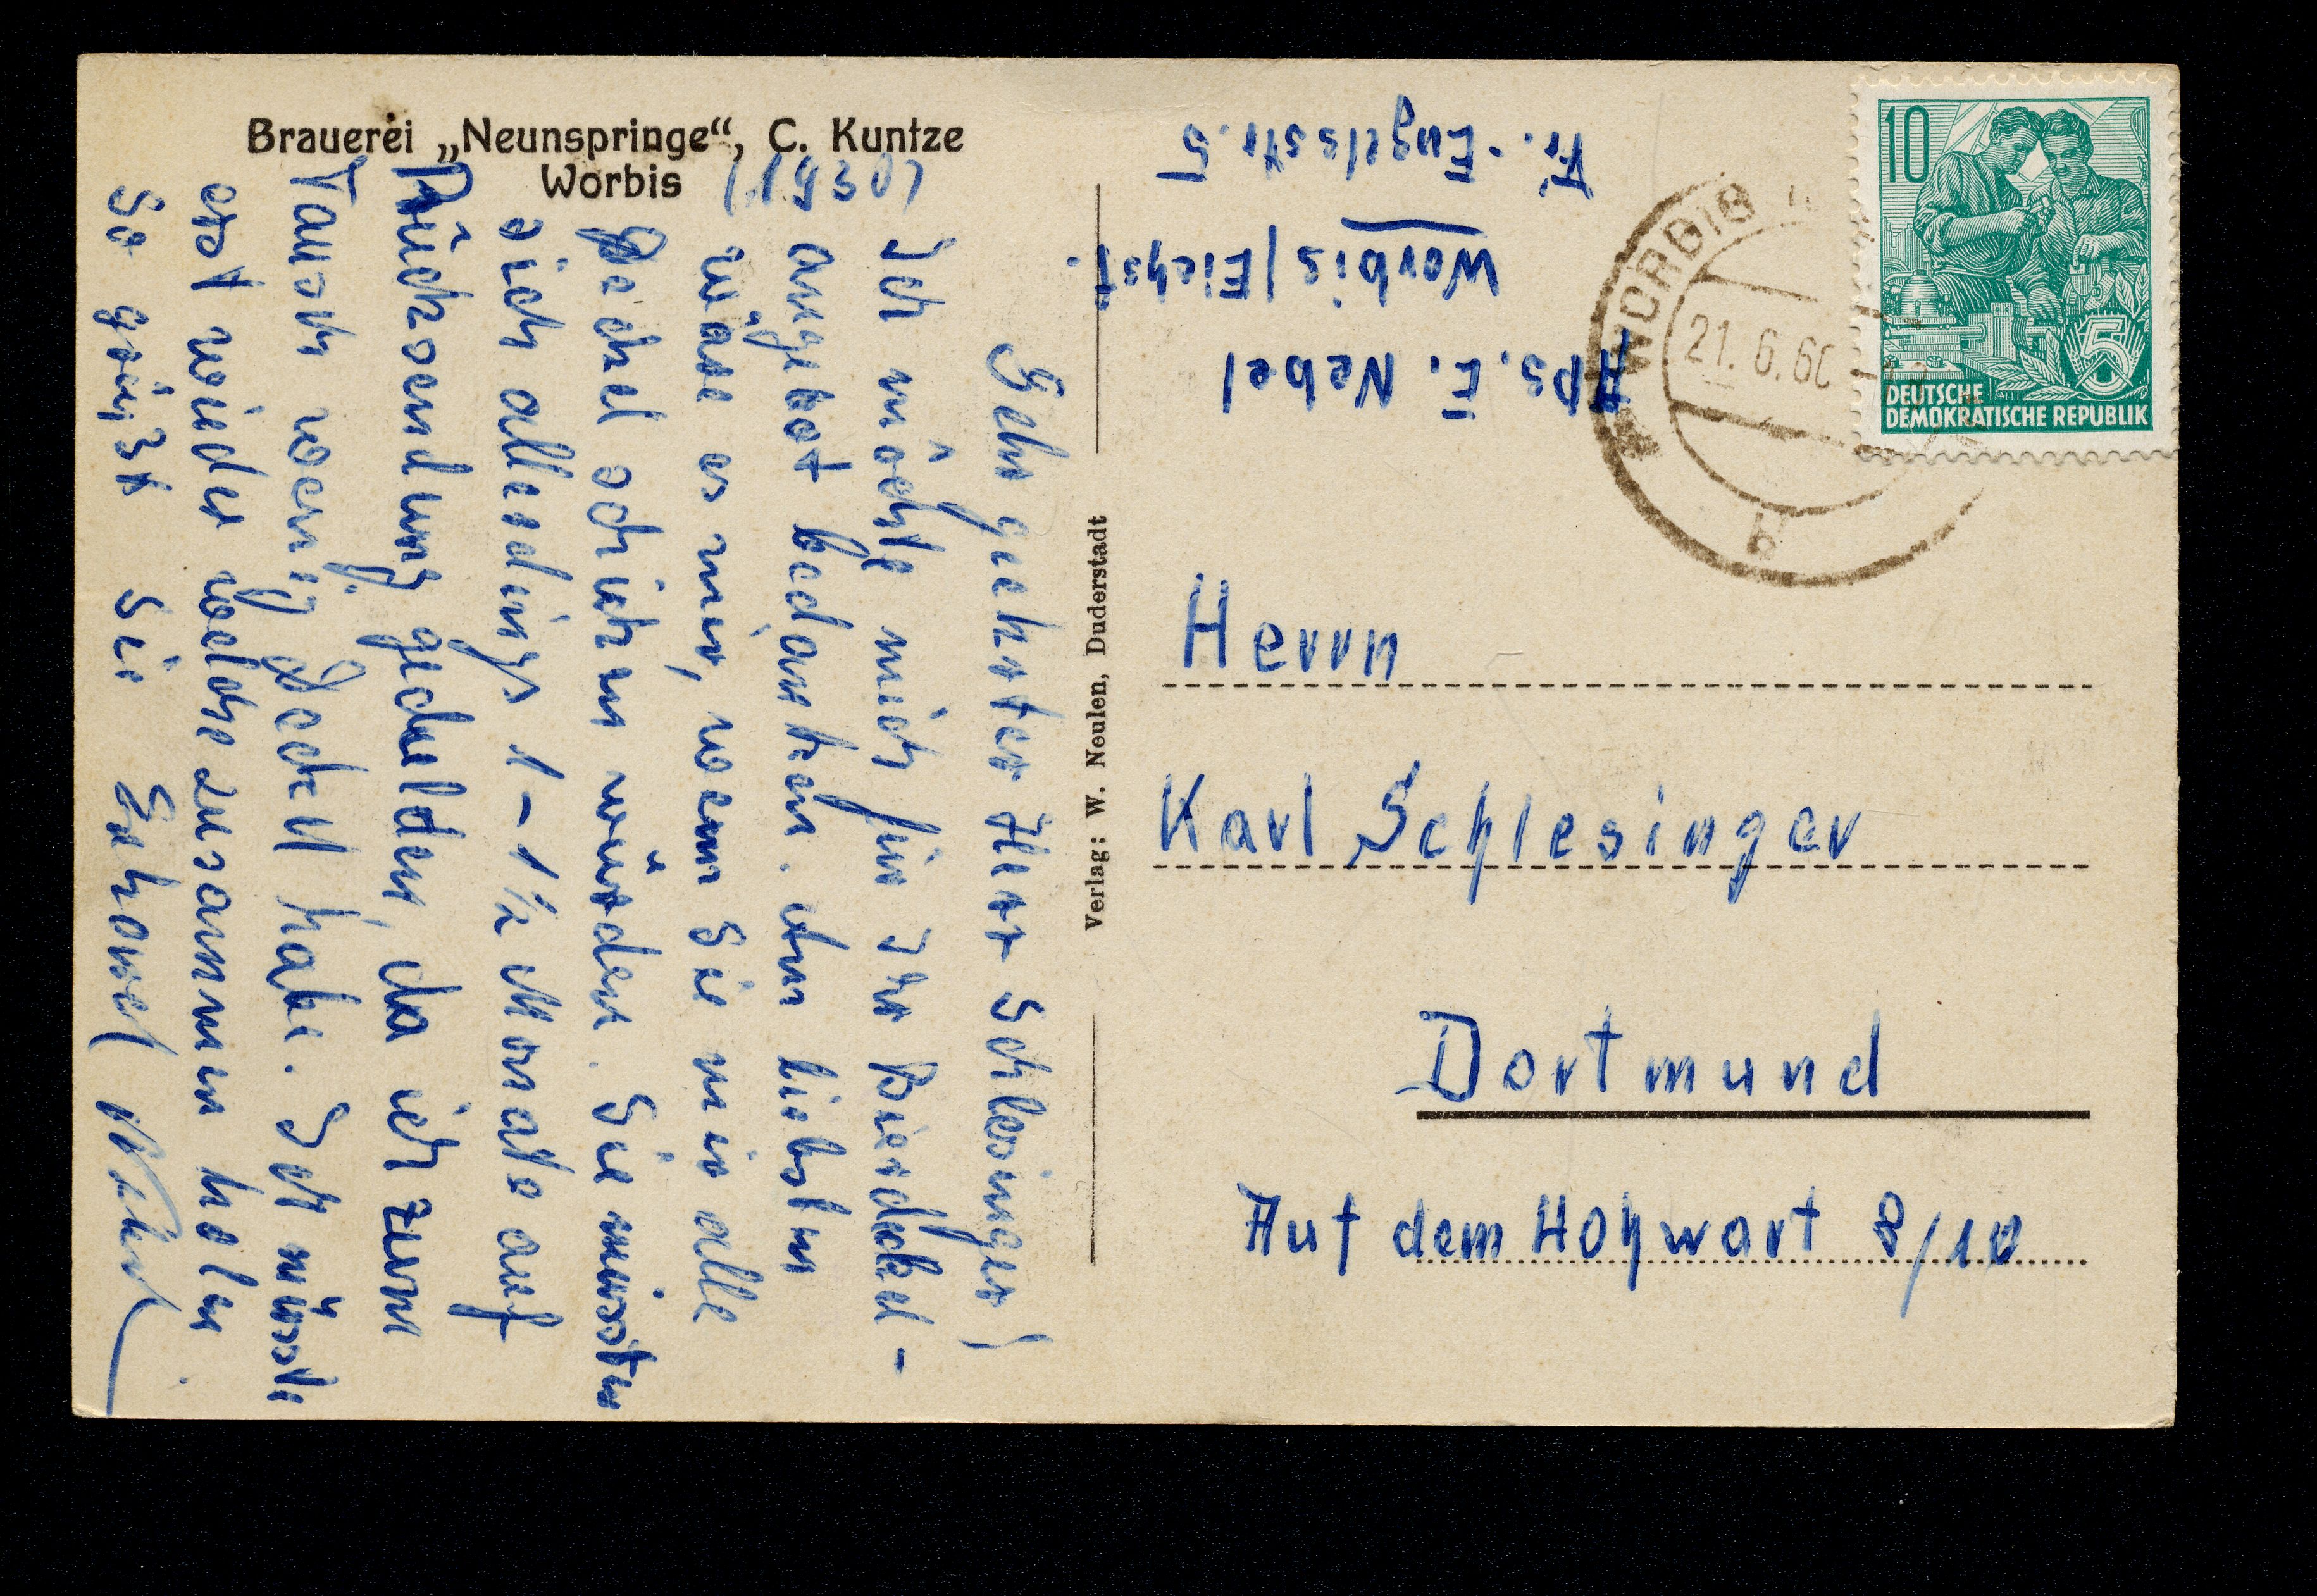 Brauerei „Neunspringe“, C. Kuntze
Worbis
Sehr geehrter Herr Schlesinger!
Ich möchte mich für Ihr Bierdeckel-
angebot bedanken. Am liebsten
wäre es mir, wenn Sie mir alle
Deckel schicken würden. Sie müssten
sich allerdings 1-1½ Monate auf
Rücksendung gedulden, da ich zum
Tausch wenig Deckel habe. Ich müsste
erst wieder welche zusammen holen.
So grüßt Sie Nebel
Verlag: W. Neulen, Duderstadt
Abs. E. Nebel
Worbis/Eichsf.
Fr.-Engelsstr. 5
WORBIS
21.6.60
10
5
DEUTSCHE
DEMOKRATISCHE REPUBLIK
Herrn
Karl Schlesinger
Dortmund
Auf dem Hohwart 8/10